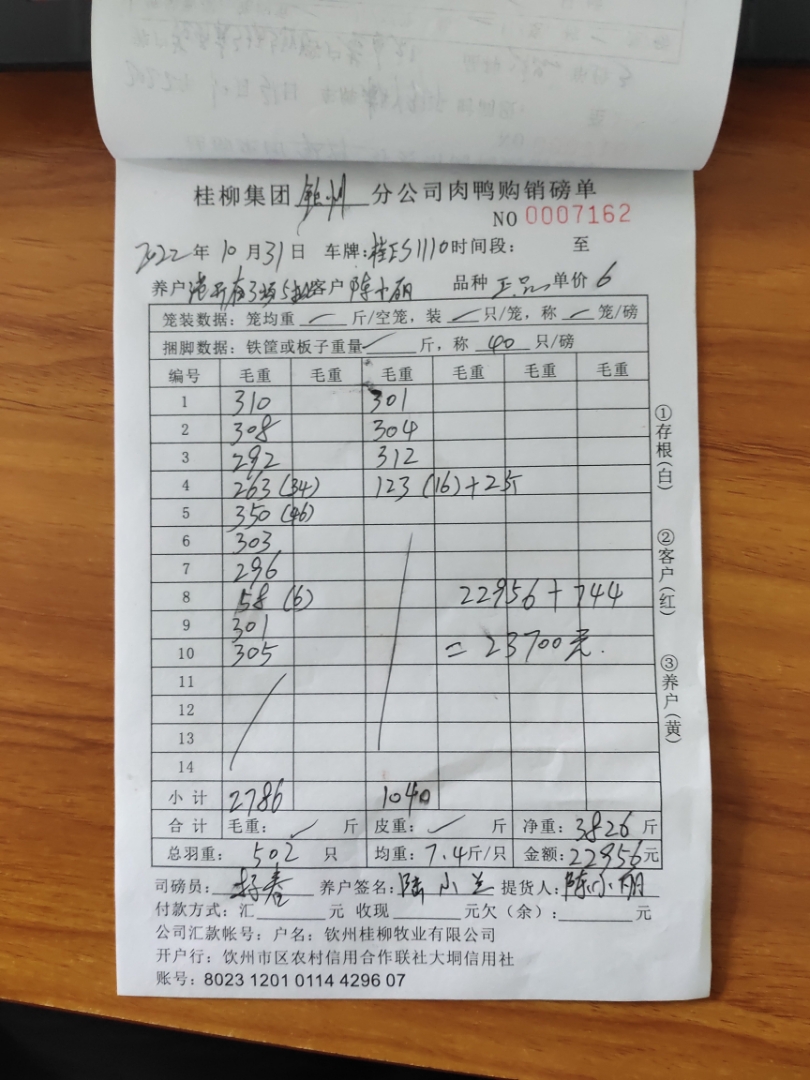 桂柳集团 钦州 分公司肉鸭购销磅单
NO 0007162
2022年10月31日 车牌:桂ES1110时间段: 至
养户 客户 陈小丽 品种 正品 单价 6
笼装数据:笼均重 斤/空笼,装 只/笼,称 笼/磅
捆脚数据:铁筐或板子重量 斤,称 40 只/磅
编号 毛重 毛重 毛重 毛重 毛重 毛重
1 310 301
2 308 304
3 292 312
4 263(34) 123(16)+2斤
5 350(46)
6 303
7 296
8 58(6) 22956+744
9 301
10 305 =23700元.
11
12
13
14
小计 2786 1040
合计 毛重: 斤 皮重: 斤 净重:3826斤
总羽重: 502 只 均重:7.4斤/只 金额:22956元
司磅员: 养户签名:陆小兰 提货人:陈小丽
付款方式:汇 元 收现 元欠(余): 元
公司汇款帐号:户名:钦州桂柳牧业有限公司
开户行:钦州市区农村信用合作联社大垌信用社
账号:8023 1201 0114 4296 07
①存根(白)
②客户(红)
③养户(黄)